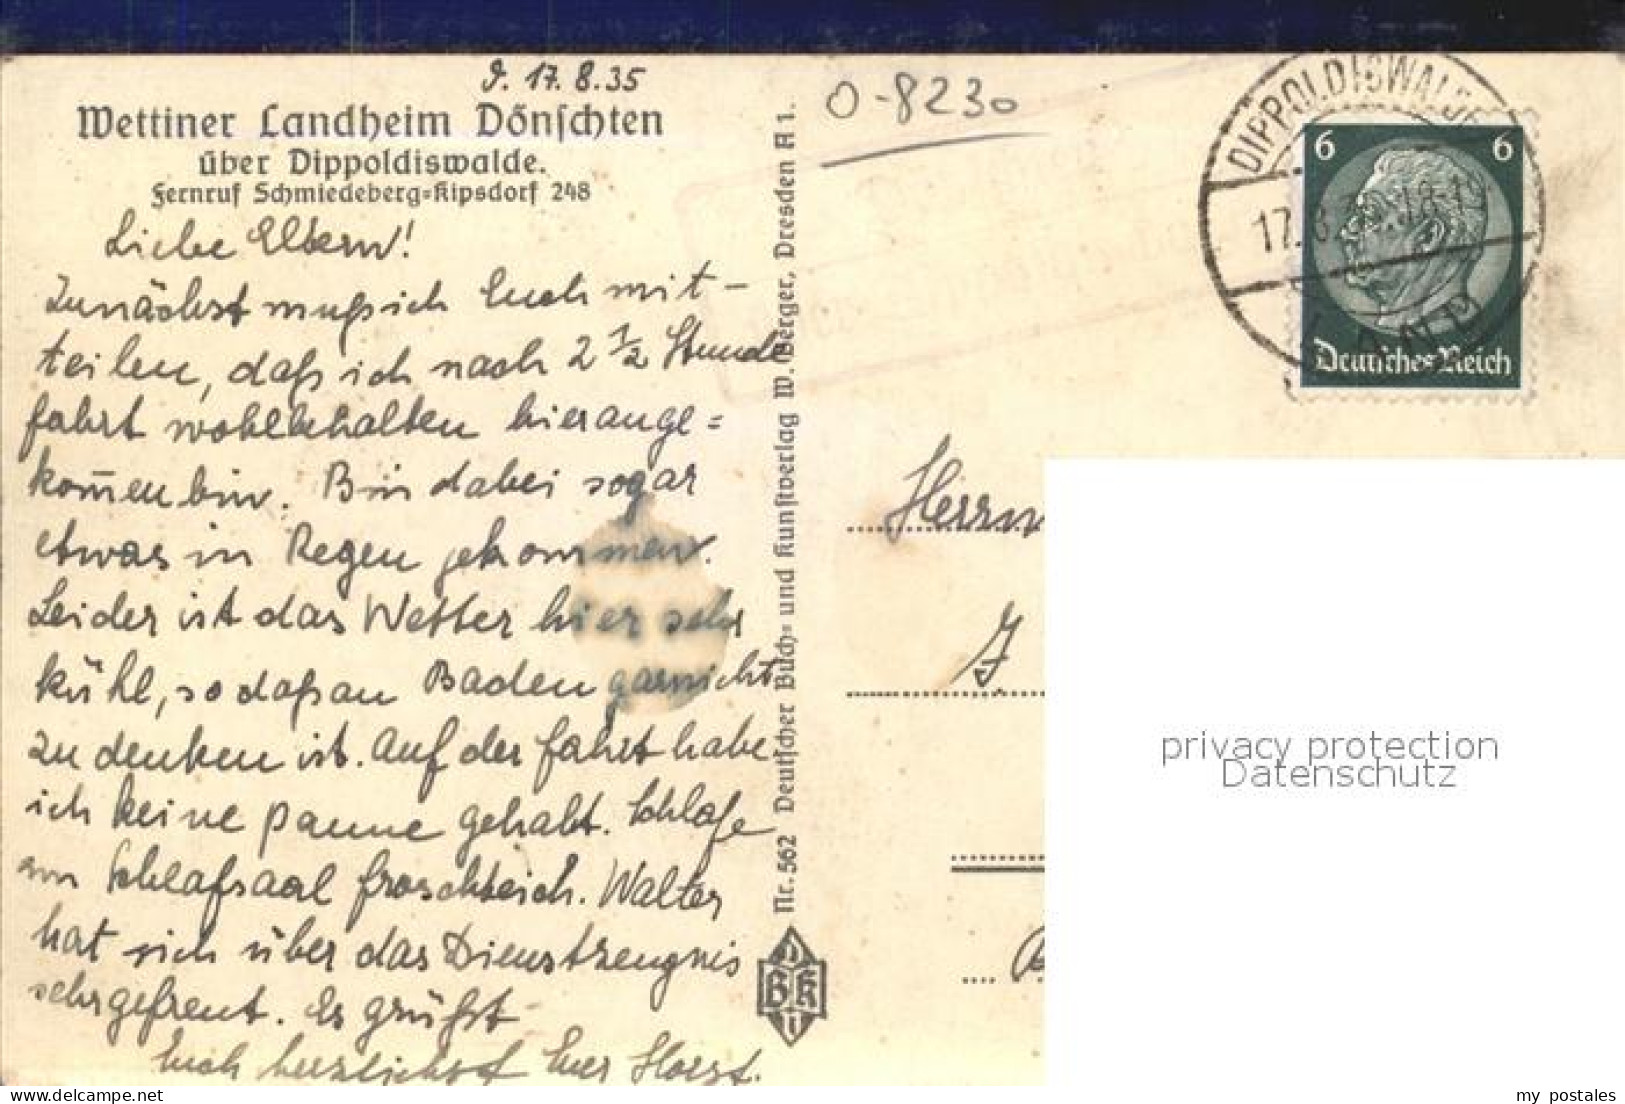 D. 17. 8. 35
Wettiner Landheim Dönschten
über Dippoldiswalde.
Fernruf Schmiedeberg=Kipsdorf 248
Liebe Eltern!
Zunächst muß ich Euch mit-
teilen, daß ich nach 2 1/2 Stunde
fahrt wohlbehalten hierange=
kom̄en bin. Bin dabei sogar
etwas in Regen gekommen.
Leider ist das Wetter hier sehr
kühl, so daß an Baden garnicht
zu denken ist. Auf der Fahrt habe
ich keine Panne gehabt. Schlafe
im Schlafsaal Froschteich. Walter
hat sich über das Dienstzeugnis
sehr gefreut. Es grüßt
Euch herzlichst Euer Horst.
Nr. 562 Deutscher Buch= und Kunstverlag W. Berger, Dresden A 1.
D
B K
U
O-8230
DIPPOLDISWALDE
LAND
6 6
Deutsches Reich
Herrn
J.
privacy protection
Datenschutz
my postales